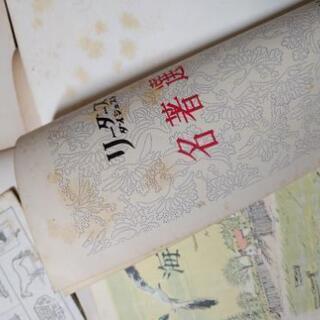 リーダーズ
ダイジェスト
名著選
海